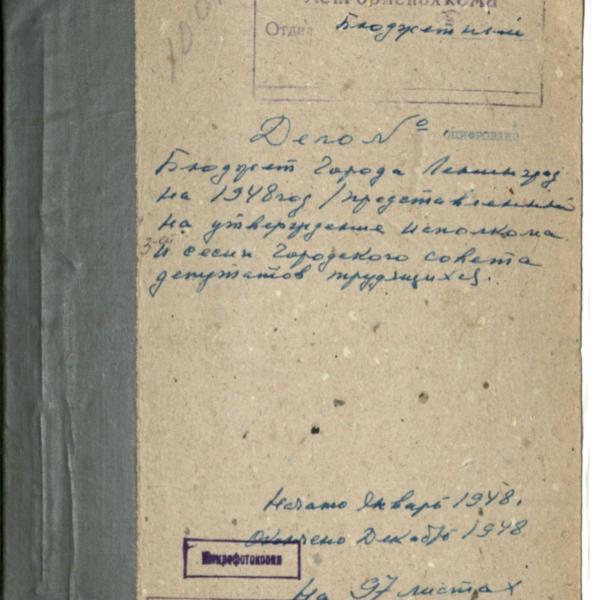 Ленгорисполкома
Отдел Бюджетный
Дело №
оцифровано
Бюджет Города Ленинград
на 1948 год /представленный
на утверждение исполкома
и сесии Городского совета
депутатов трудящихся.
Начато Январь 1948.
Окончено Декабрь 1948
Микрофотокопия
На 97 листах